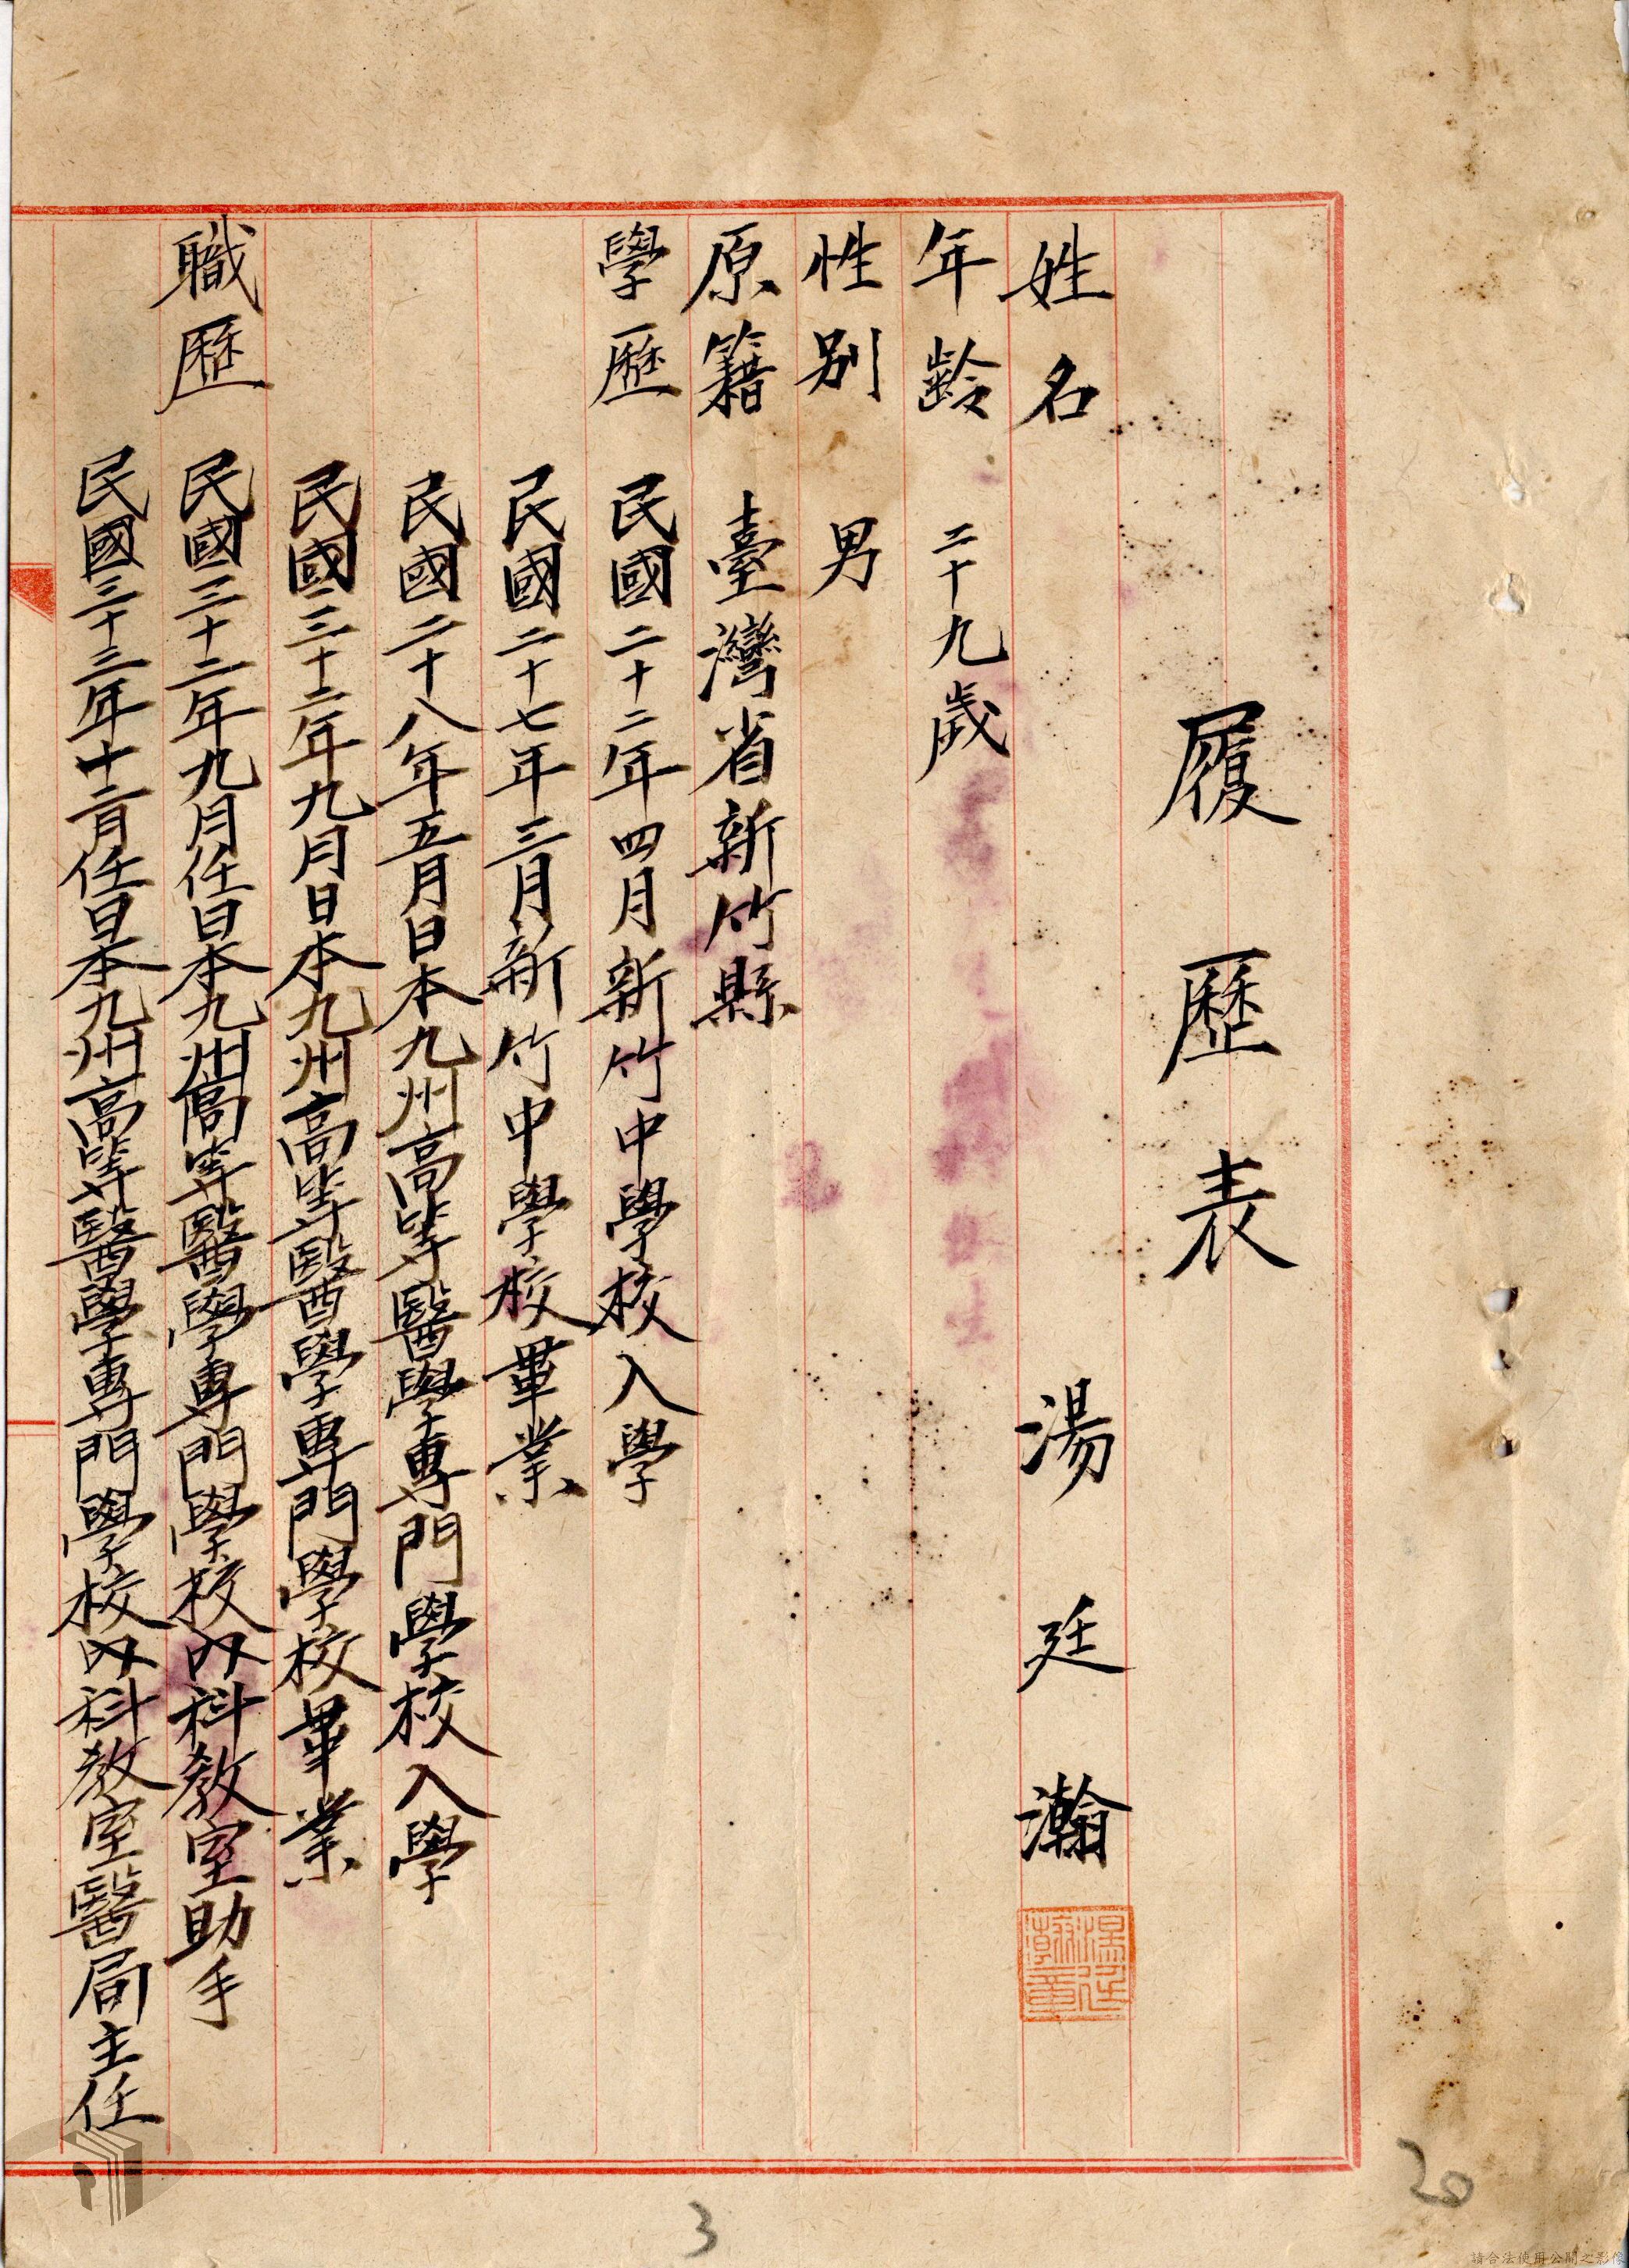 履歷表
姓名 湯廷瀚
年齡 二十九歲
性別 男
原籍 臺灣省新竹縣
學歷 民國二十二年四月新竹中學校入學
民國二十七年三月新竹中學校畢業
民國二十八年五月日本九州高等醫學專門學校入學
民國三十二年九月日本九州高等醫學專門學校畢業
職歷 民國三十二年九月任日本九州高等醫學專門學校內科教室助手
民國三十三年十二月任日本九州高等醫學專門學校內科教室醫局主任
湯廷瀚章
3
20
請合法使用公開之影像